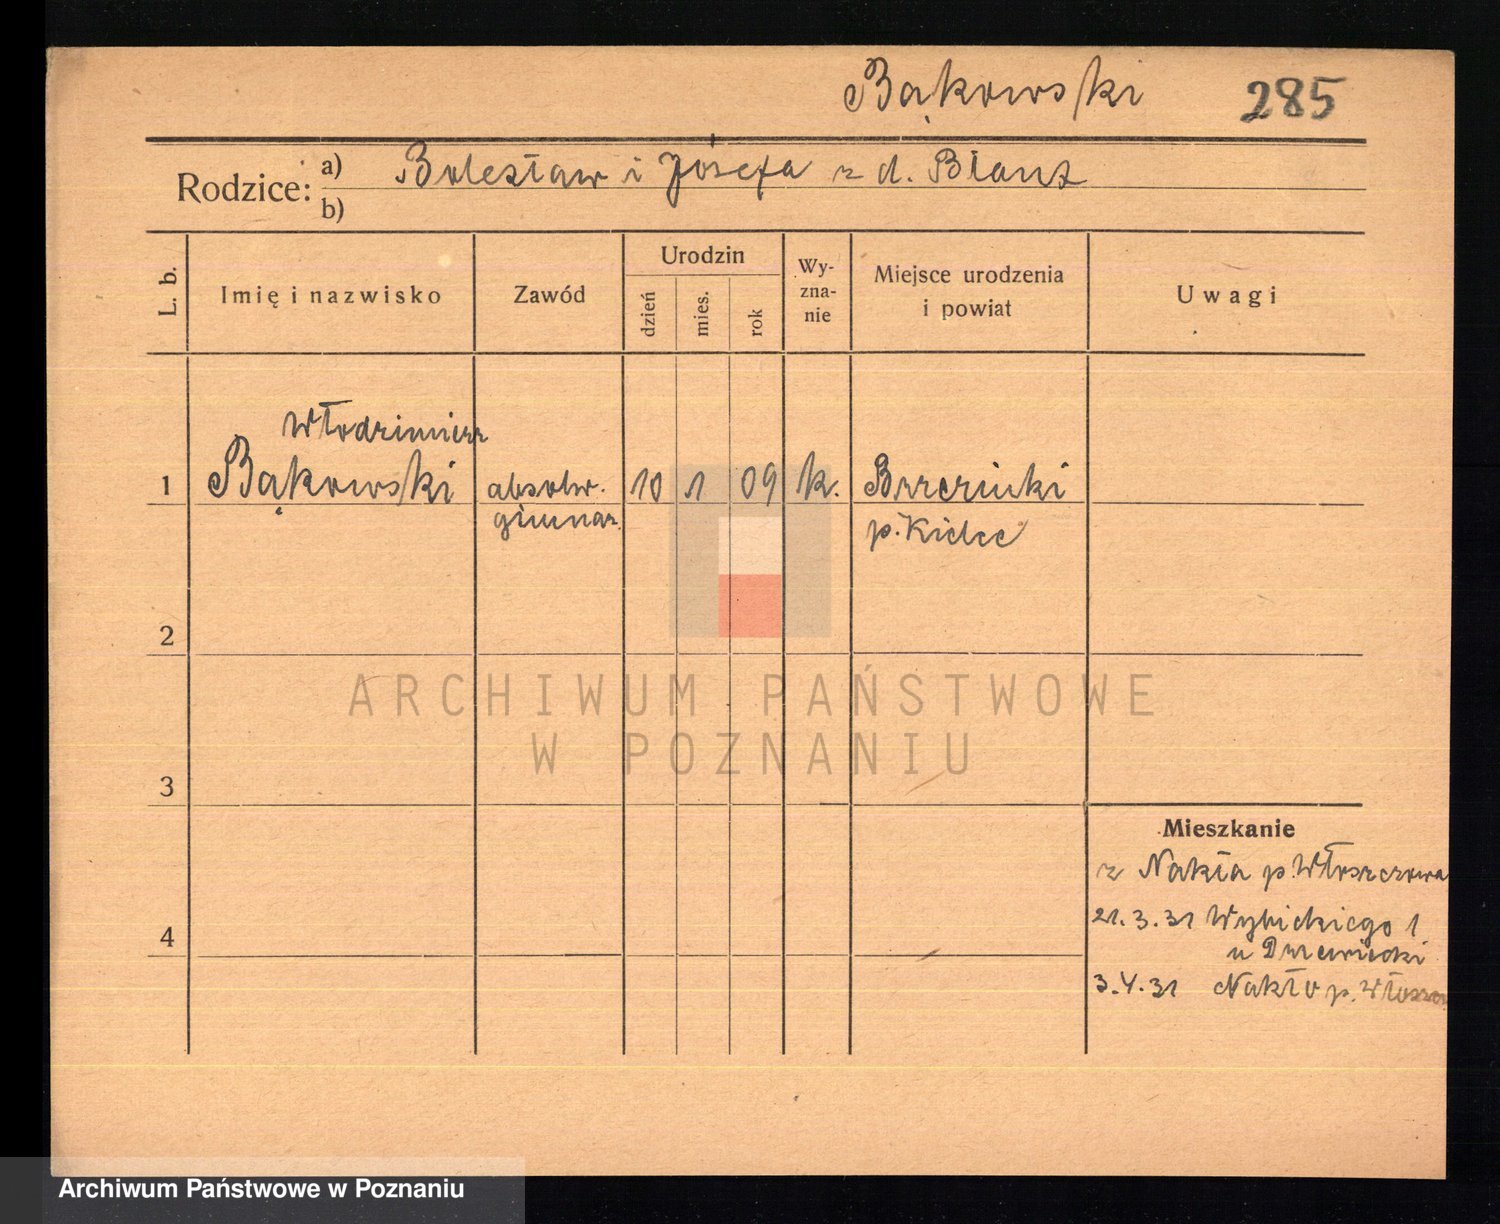 Bąkowski 285
Rodzice: a) Bolesław i Józefa z d. Blanz
b)
L. b. Imię i nazwisko Zawód Urodzin dzień mies. rok Wy-zna-nie Miejsce urodzenia i powiat Uwagi
Włodzimierz
1 Bąkowski absolw. 10 1 09 k. Brzezinki
gimnaz. p. Kielce
2
ARCHIWUM PAŃSTWOWE
W POZNANIU
3
Mieszkanie
z Nakła p. Włoszczowa
21.3.31 Wybickiego 1
4
u
3.4.31 Nakło p.
Archiwum Państwowe w Poznaniu